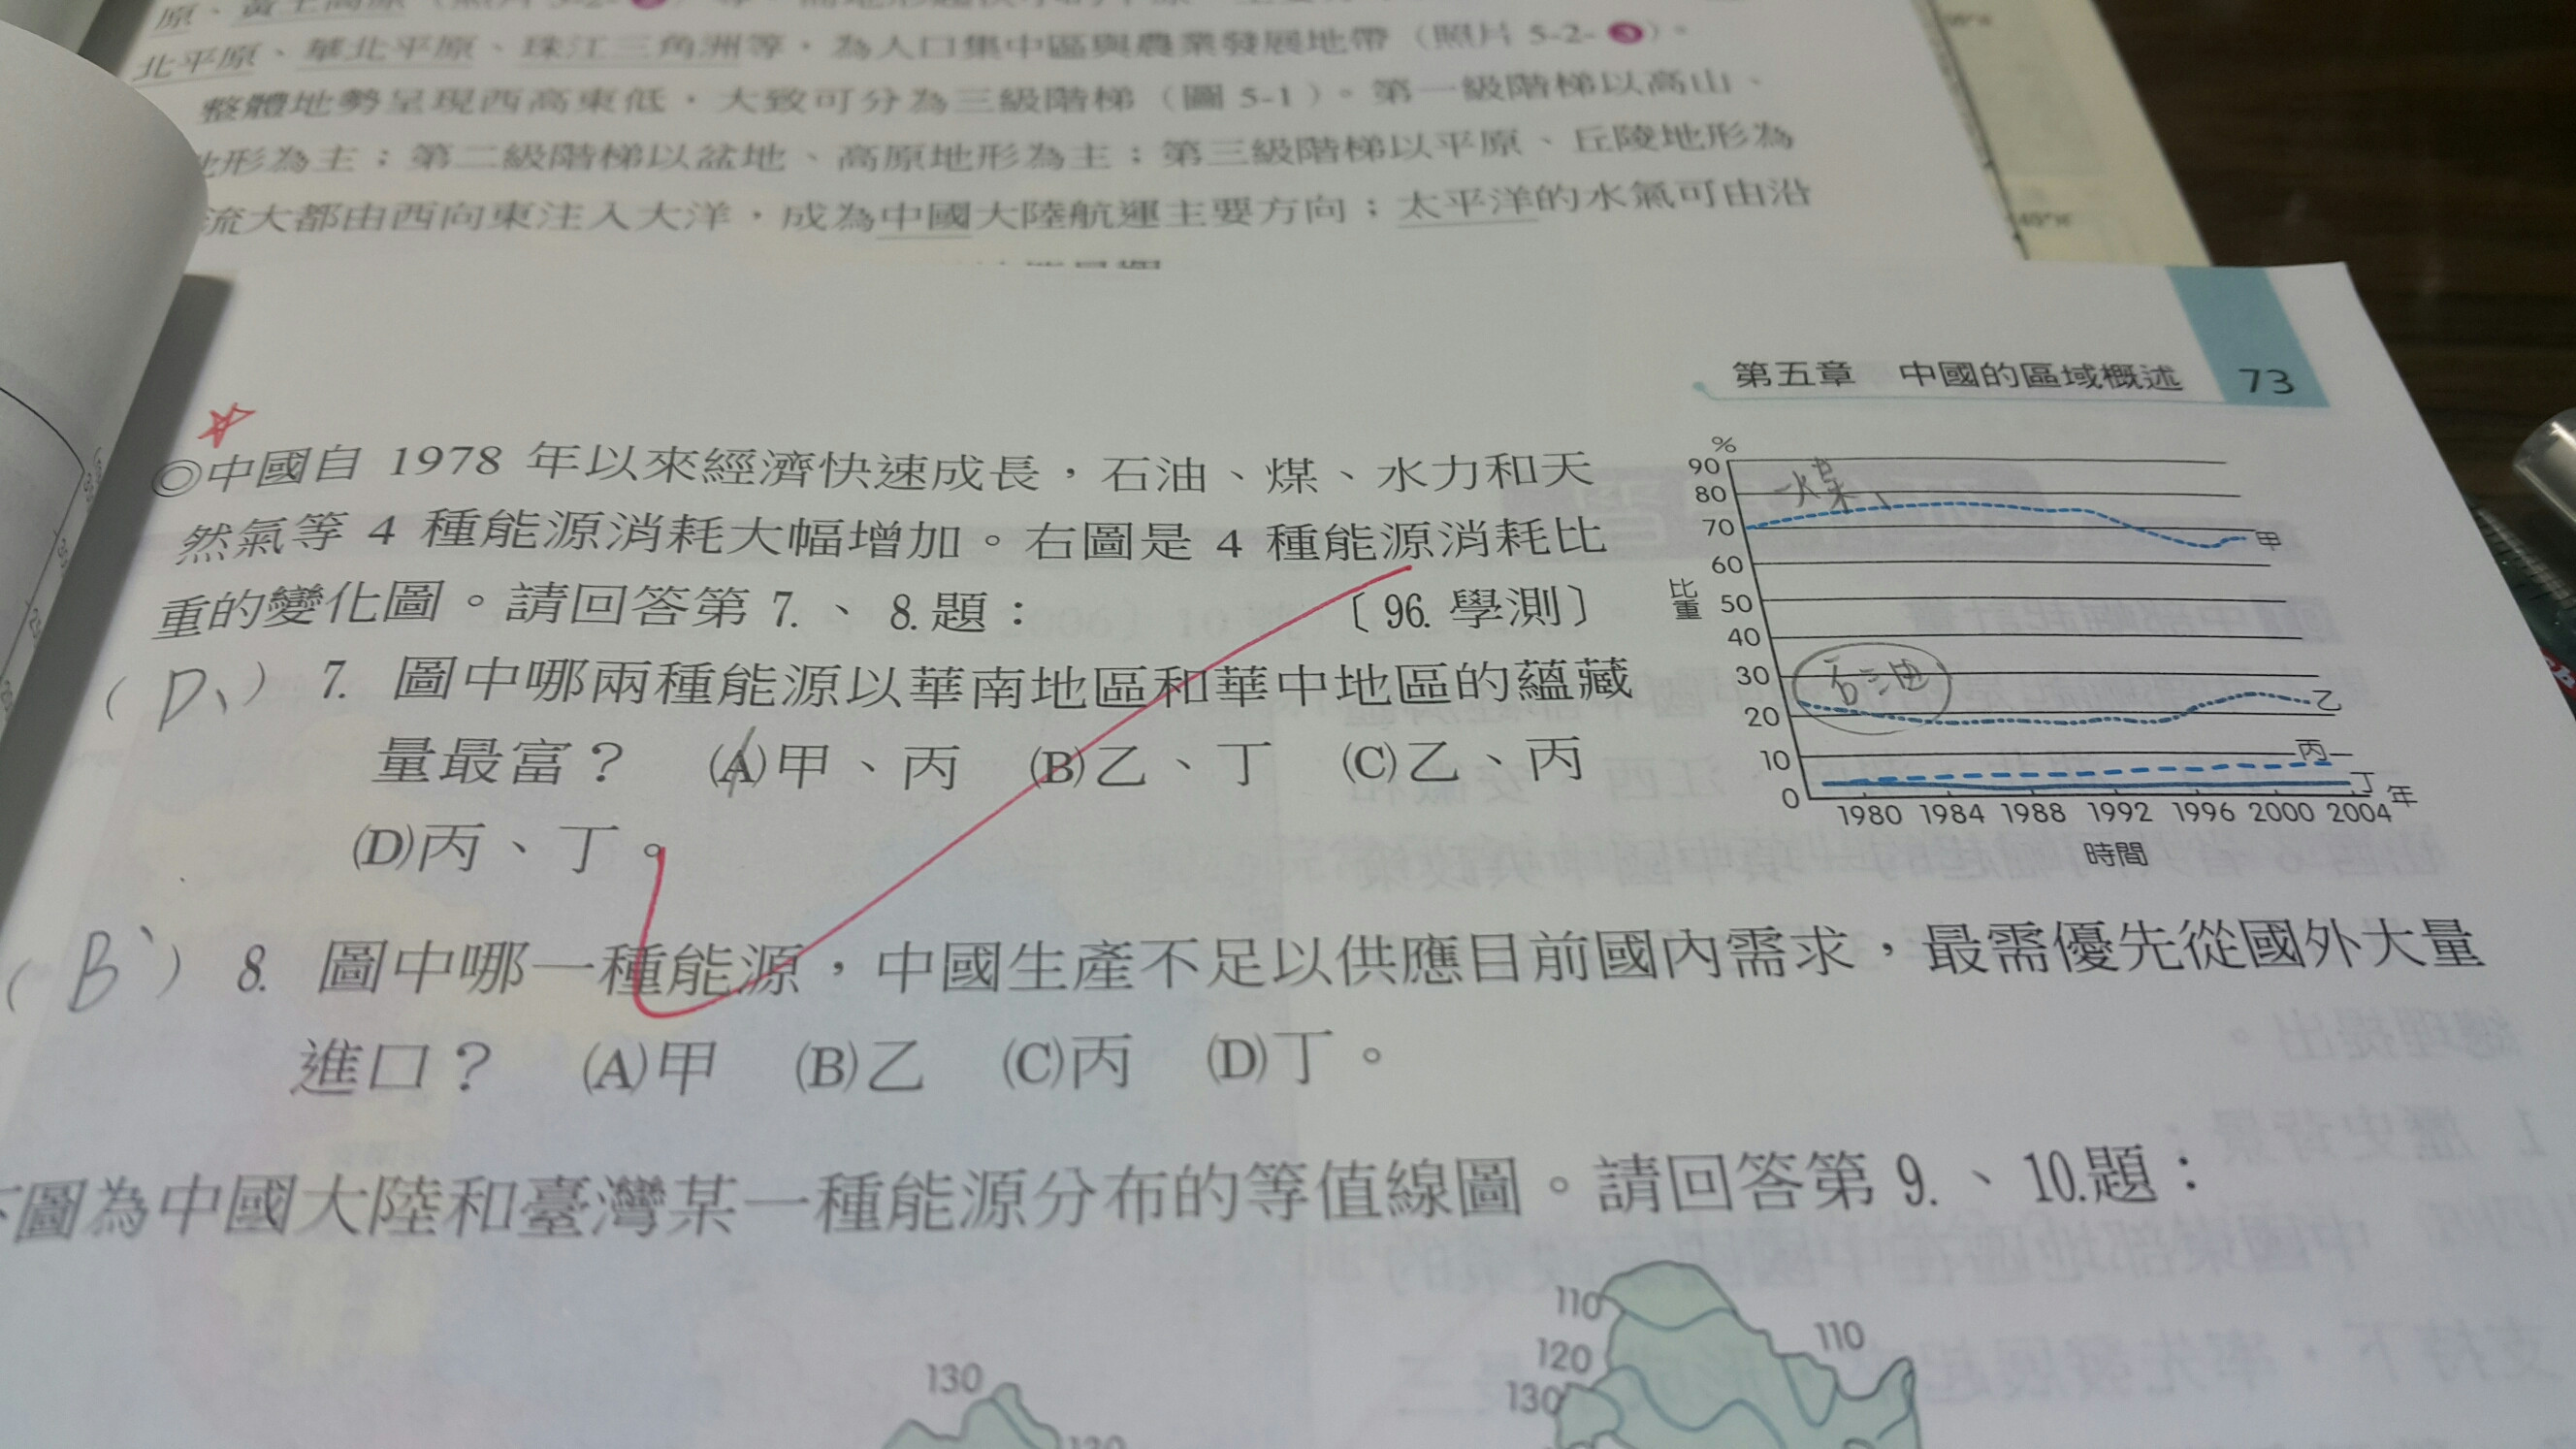 北平原、華北平原、珠江三角洲等,為人口集中區與農業發展地帶(照片 5-2-❸)。
整體地勢呈現西高東低,大致可分為三級階梯(圖 5-1)。第一級階梯以高山、
地形為主;第二級階梯以盆地、高原地形為主;第三級階梯以平原、丘陵地形為
流大都由西向東注入大洋,成為中國大陸航運主要方向;太平洋的水氣可由沿
第五章 中國的區域概述 73
◎中國自 1978 年以來經濟快速成長,石油、煤、水力和天
然氣等 4 種能源消耗大幅增加。右圖是 4 種能源消耗比
重的變化圖。請回答第 7.、8.題: 〔96. 學測〕
( D、) 7. 圖中哪兩種能源以華南地區和華中地區的蘊藏
量最富? (A)甲、丙 (B)乙、丁 (C)乙、丙
(D)丙、丁。
%
90
80
70
60
50
40
30
20
10
0
比重
煤
石油
甲
乙
丙
丁
年
1980 1984 1988 1992 1996 2000 2004
時間
( B、) 8. 圖中哪一種能源,中國生產不足以供應目前國內需求,最需優先從國外大量
進口? (A)甲 (B)乙 (C)丙 (D)丁。
下圖為中國大陸和臺灣某一種能源分布的等值線圖。請回答第 9.、10.題:
110
110
120
130
130